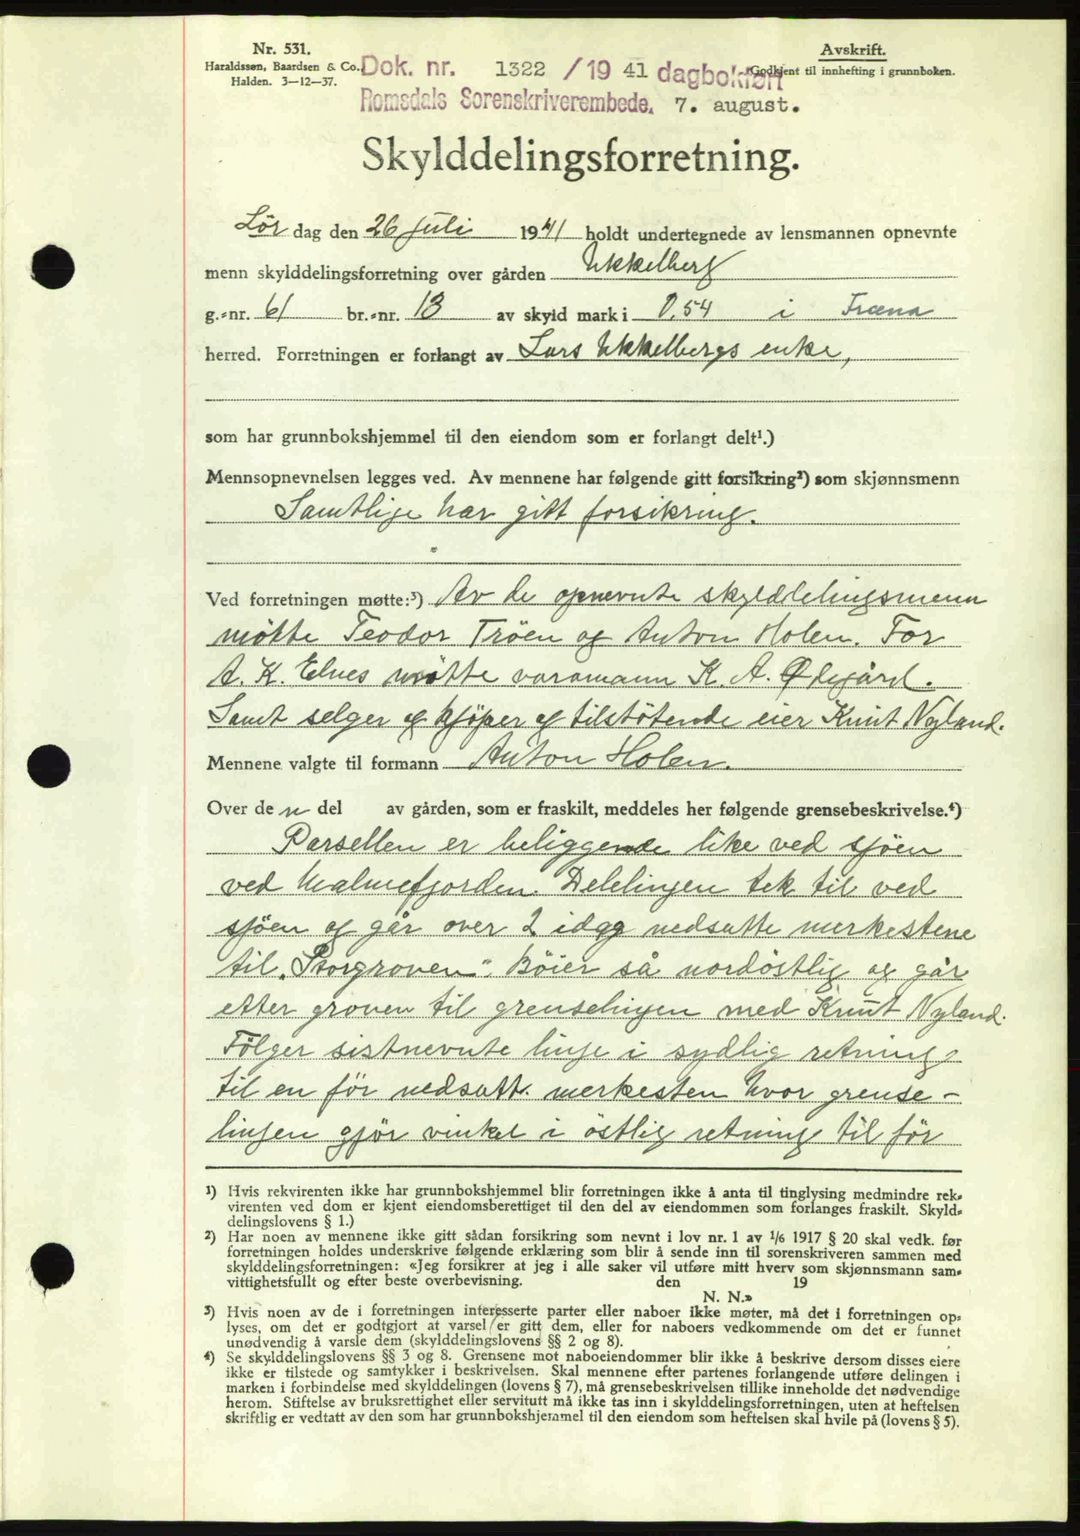 Nr. 531.
Haraldssøn, Baardsen & Co.
Halden. 3—12—37.
Avskrift.
Godkjent til innhefting i grunnboken.
Dok. nr. 1322 /19 41 dagbokført
Romsdals Sorenskriverembede. 7. august.
Skylddelingsforretning.
Lør dag den 26 juli 1941 holdt undertegnede av lensmannen opnevnte
menn skylddelingsforretning over gården Ukkelberg
g.-nr. 61 br.-nr. 13 av skyld mark i 0,54 i Fræna
herred. Forretningen er forlangt av Lars Ukkelbergs enke,
som har grunnbokshjemmel til den eiendom som er forlangt delt¹.)
Mennsopnevnelsen legges ved. Av mennene har følgende gitt forsikring²) som skjønnsmenn
Samtlige har gitt forsikring.
Ved forretningen møtte:³) Av de opnevnte skylddelingsmenn
møtte Teodor Tröen og Anton Holen. For
A. K. Elnes møtte varamann K. A. Ødegård.
Samt selger og kjöper og tilstötende eier Knut Nyland.
Mennene valgte til formann Anton Holen.
Over de n del av gården, som er fraskilt, meddeles her følgende grensebeskrivelse.⁴)
Parsellen er beliggende like ved sjöen
ved Malmefjorden. Delelinjen tek til ved
sjöen og går over 2 idag nedsatte merkestene
til „Storgroven“. Böier så nordöstlig og går
etter groven til grenselinjen med Knut Nyland.
Fölger sistnevnte linje i sydlig retning
til en för nedsatt merkesten hvor grense-
linjen gjör vinkel i östlig retning til för
¹) Hvis rekvirenten ikke har grunnbokshjemmel blir forretningen ikke å anta til tinglysing medmindre rek-
virenten ved dom er kjent eiendomsberettiget til den del av eiendommen som forlanges fraskilt. Skyld-
delingslovens § 1.)
²) Har noen av mennene ikke gitt sådan forsikring som nevnt i lov nr. 1 av 1/6 1917 § 20 skal vedk. før
forretningen holdes underskrive følgende erklæring som blir å sende inn til sorenskriveren sammen med
skylddelingsforretningen: «Jeg forsikrer at jeg i alle saker vil utføre mitt hverv som skjønnsmann sam-
vittighetsfullt og efter beste overbevisning. den 19
N. N.»
³) Hvis noen av de i forretningen interesserte parter eller naboer ikke møter, må det i forretningen op-
lyses, om det er godtgjort at varsel er gitt dem, eller for naboers vedkommende om det er funnet
unødvendig å varsle dem (skylddelingslovens §§ 2 og 8).
⁴) Se skylddelingslovens §§ 3 og 8. Grensene mot naboeiendommer blir ikke å beskrive dersom disses eiere
ikke er tilstede og samtykker i beskrivelsen. Skal mennene efter partenes forlangende utføre delingen i
marken i forbindelse med skylddelingen (lovens § 7), må grensebeskrivelsen tillike inneholde det nødvendige
herom. Stiftelse av bruksrettighet eller servitutt må ikke tas inn i skylddelingsforretningen, uten at heftelsen
skriftlig er vedtatt av den som har grunnbokshjemmel til den eiendom som heftelsen skal hvile på (lovens § 5).